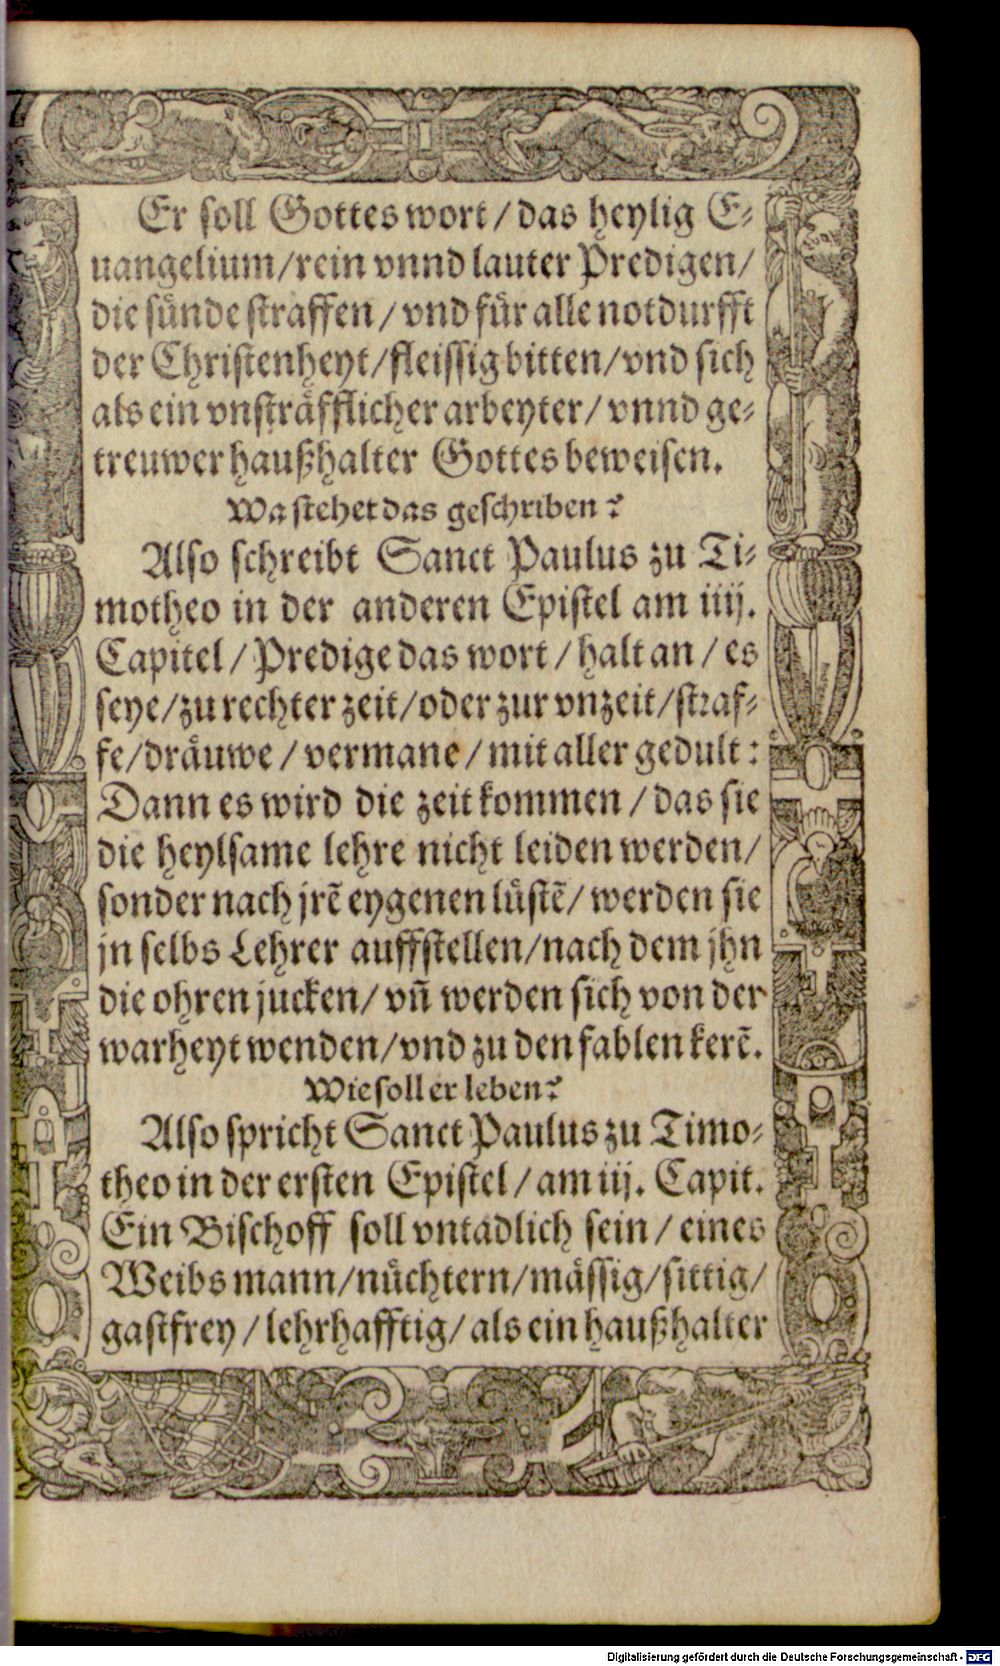 Er soll Gottes wort / das heylig E⸗
uangelium/rein vnnd lauter Predigen/
die sünde straffen / vnd für alle notdurfft
der Christenheyt/fleissig bitten/vnd sich
als ein vnsträfflicher arbeyter/ vnnd ge⸗
treuwer haußhalter Gottes beweisen.
Wa stehet das geschriben?
Also schreibt Sanct Paulus zu Ti⸗
motheo in der anderen Epistel am iiij.
Capitel / Predige das wort / halt an / es
seye/zu rechter zeit/oder zur vnzeit/straf⸗
fe/dräuwe / vermane / mit aller gedult:
Dann es wird die zeit kommen / das sie
die heylsame lehre nicht leiden werden/
sonder nach jrē eygenen lüstē/ werden sie
jn selbs Lehrer auffstellen/nach dem jhn
die ohren jucken/ vñ werden sich von der
warheyt wenden/vnd zu den fablen kerē.
Wie soll er leben?
Also spricht Sanct Paulus zu Timo⸗
theo in der ersten Epistel / am iij. Capit.
Ein Bischoff soll vntadlich sein / eines
Weibs mann/nüchtern/mässig/sittig/
gastfrey / lehrhafftig/ als ein haußhalter
Digitalisierung gefördert durch die Deutsche Forschungsgemeinschaft - DFG